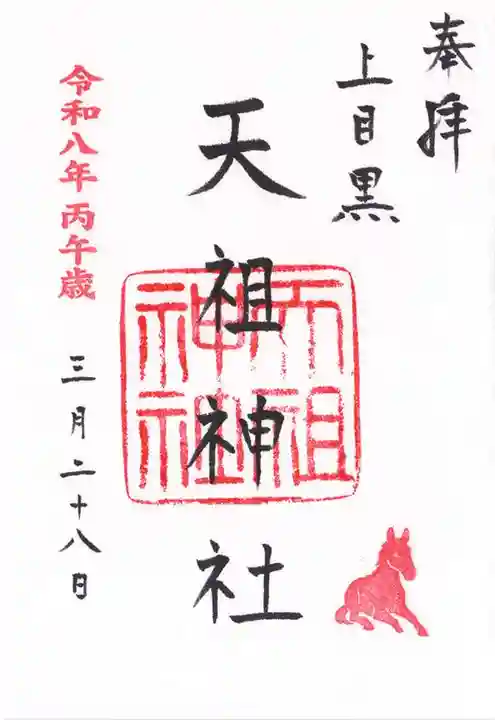 奉拝
上目黒
天祖神社
天祖
神社
令和八年丙午歳
三月二十八日